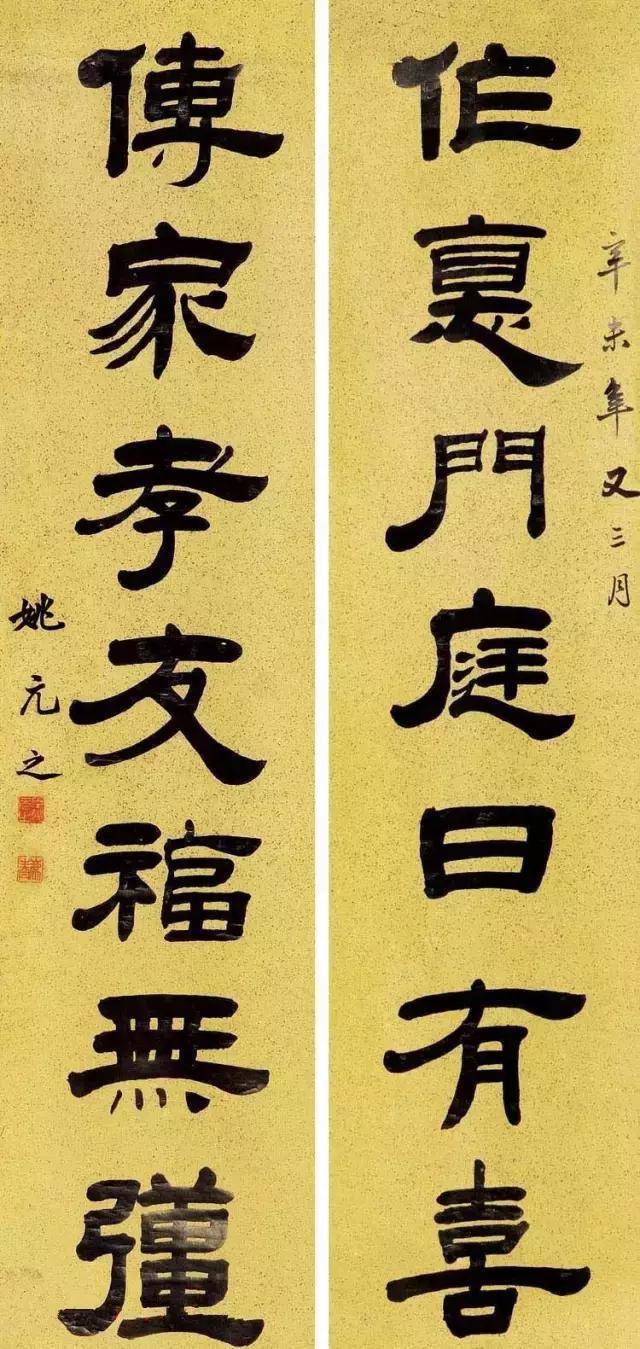 辛未年又三月
作裏門庭日有喜
傳家孝友福無彊
姚元之